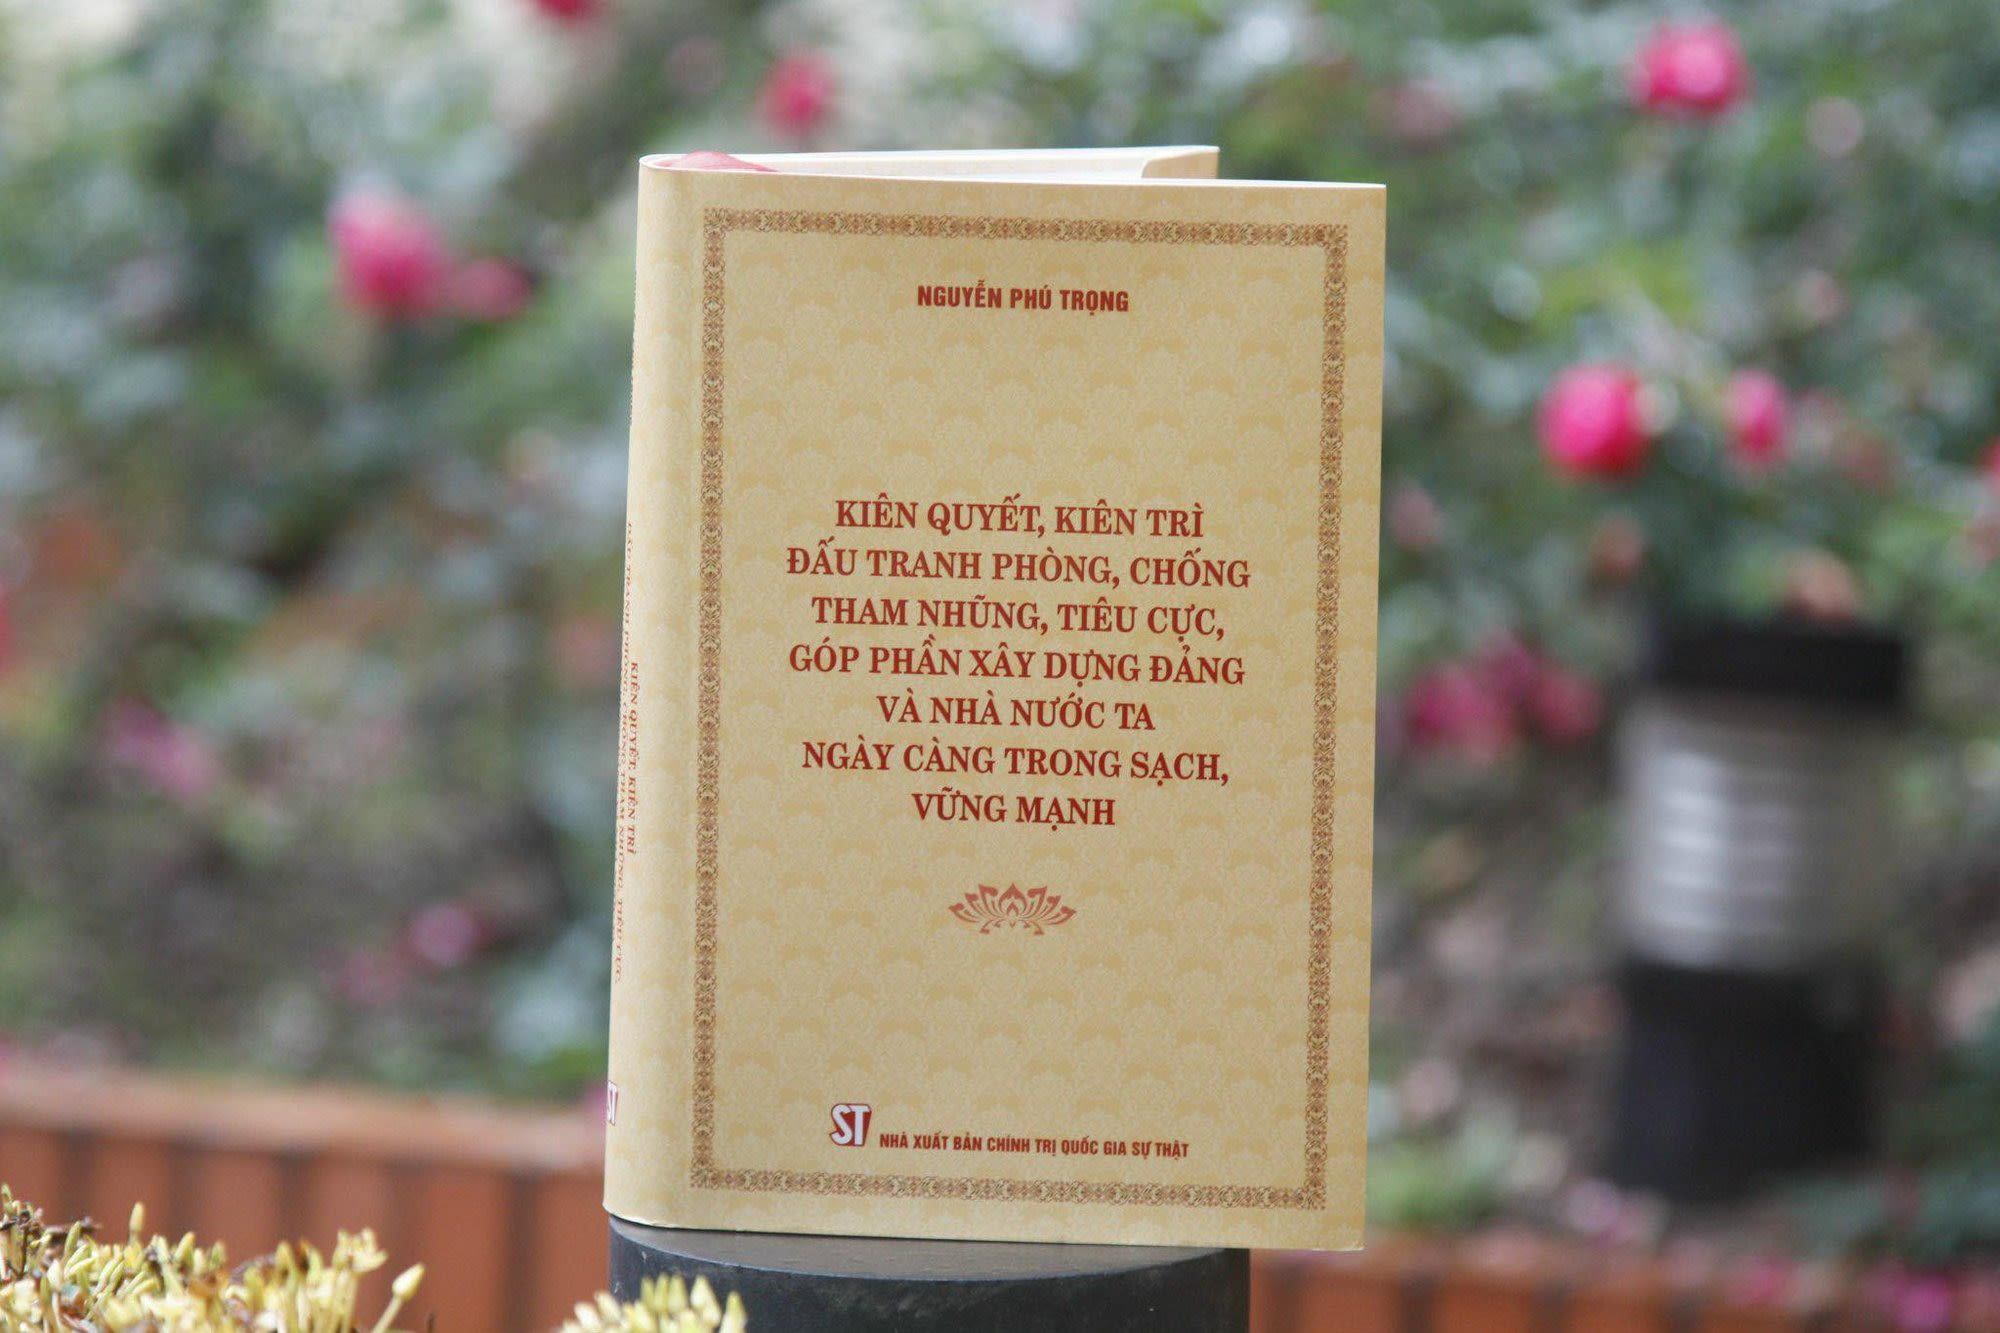 NGUYỄN PHÚ TRỌNG
KIÊN QUYẾT, KIÊN TRÌ
ĐẤU TRANH PHÒNG, CHỐNG
THAM NHŨNG, TIÊU CỰC,
GÓP PHẦN XÂY DỰNG ĐẢNG
VÀ NHÀ NƯỚC TA
NGÀY CÀNG TRONG SẠCH,
VỮNG MẠNH
ST NHÀ XUẤT BẢN CHÍNH TRỊ QUỐC GIA SỰ THẬT
KIÊN QUYẾT, KIÊN TRÌ
ĐẤU TRANH PHÒNG, CHỐNG THAM NHŨNG, TIÊU CỰC,
ST